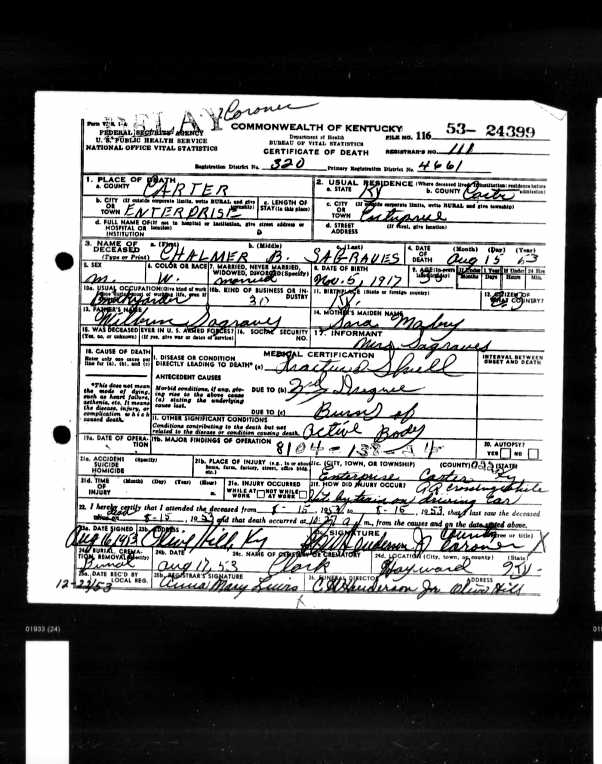 Coroner
DELAY
Form V. S. 1-A
FEDERAL SECURITY AGENCY
U. S. PUBLIC HEALTH SERVICE
NATIONAL OFFICE VITAL STATISTICS
COMMONWEALTH OF KENTUCKY
Department of Health
BUREAU OF VITAL STATISTICS
CERTIFICATE OF DEATH
FILE NO. 116 53- 24399
REGISTRAR'S NO. 111
Registration District No. 320 Primary Registration District No. 4661
1. PLACE OF DEATH
a. COUNTY CARTER
2. USUAL RESIDENCE (Where deceased lived. If institution: residence before admission)
a. STATE Ky b. COUNTY Carter
b. CITY (If outside corporate limits, write RURAL and give township)
OR TOWN ENTERPRISE
c. LENGTH OF STAY (in this place)
c. CITY (If outside corporate limits, write RURAL and give township)
OR TOWN Enterprise
d. FULL NAME OF (If not in hospital or institution, give street address or location)
HOSPITAL OR INSTITUTION
d. STREET ADDRESS (If rural, give location)
3. NAME OF DECEASED (Type or Print)
a. (First) CHALMER b. (Middle) B. c. (Last) SAGRAVES
4. DATE OF DEATH (Month) (Day) (Year) Aug 15 53
5. SEX m.
6. COLOR OR RACE W.
7. MARRIED, NEVER MARRIED, WIDOWED, DIVORCED (Specify) married
8. DATE OF BIRTH Nov. 5, 1917
10a. USUAL OCCUPATION (Give kind of work
10b. KIND OF BUSINESS OR INDUSTRY
11. BIRTHPLACE (State or foreign country) Ky
12. CITIZEN OF WHAT COUNTRY?
13. FATHER'S NAME Wilburn Sagraves
14. MOTHER'S MAIDEN NAME Sara
15. WAS DECEASED EVER IN U. S. ARMED FORCES?
(Yes, no, or unknown) (If yes, give war or dates of service)
16. SOCIAL SECURITY NO.
17. INFORMANT Mrs Sagraves
18. CAUSE OF DEATH
Enter only one cause per line for (a), (b), and (c)
MEDICAL CERTIFICATION
INTERVAL BETWEEN ONSET AND DEATH
I. DISEASE OR CONDITION
DIRECTLY LEADING TO DEATH* (a) Fractured Skull
*This does not mean the mode of dying, such as heart failure, asthenia, etc. It means the disease, injury, or complication which caused death.
ANTECEDENT CAUSES
Morbid conditions, if any, giving rise to the above cause (a) stating the underlying cause last.
DUE TO (b) 3rd Degree
DUE TO (c) Burns of
II. OTHER SIGNIFICANT CONDITIONS
Conditions contributing to the death but not related to the disease or condition causing death. Body
19a. DATE OF OPERATION
19b. MAJOR FINDINGS OF OPERATION
20. AUTOPSY? YES NO
21a. ACCIDENT SUICIDE HOMICIDE (Specify)
21b. PLACE OF INJURY (e.g., in or about home, farm, factory, street, office bldg., etc.)
21c. (CITY, TOWN, OR TOWNSHIP) (COUNTY) (STATE)
Enterprise Carter Ky
21d. TIME OF INJURY (Month) (Day) (Year) (Hour) m.
21e. INJURY OCCURRED
WHILE AT WORK NOT WHILE AT WORK
21f. HOW DID INJURY OCCUR? R.R. Crossing while
Hit by train on driving Car
22. I hereby certify that I attended the deceased from 8-15, 1953, to 8-15, 1953, that I last saw the deceased
8-15, 1953, and that death occurred at m., from the causes and on the date stated above.
23a. DATE SIGNED Aug 16 1953
23b. ADDRESS Olive Hill Ky
SIGNATURE (Degree or title)
Coroner
24a. BURIAL, CREMATION, REMOVAL (Specify) Burial
24b. DATE Aug 17, 53
24c. NAME OF CEMETERY OR CREMATORY Clark
24d. LOCATION (City, town, or county) (State) Hayward Ky.
25a. DATE REC'D BY LOCAL REG. 12-22/53
25b. REGISTRAR'S SIGNATURE Anna Mary Lewis
FUNERAL DIRECTOR Henderson Jr
ADDRESS Olive Hill
01933 (24)